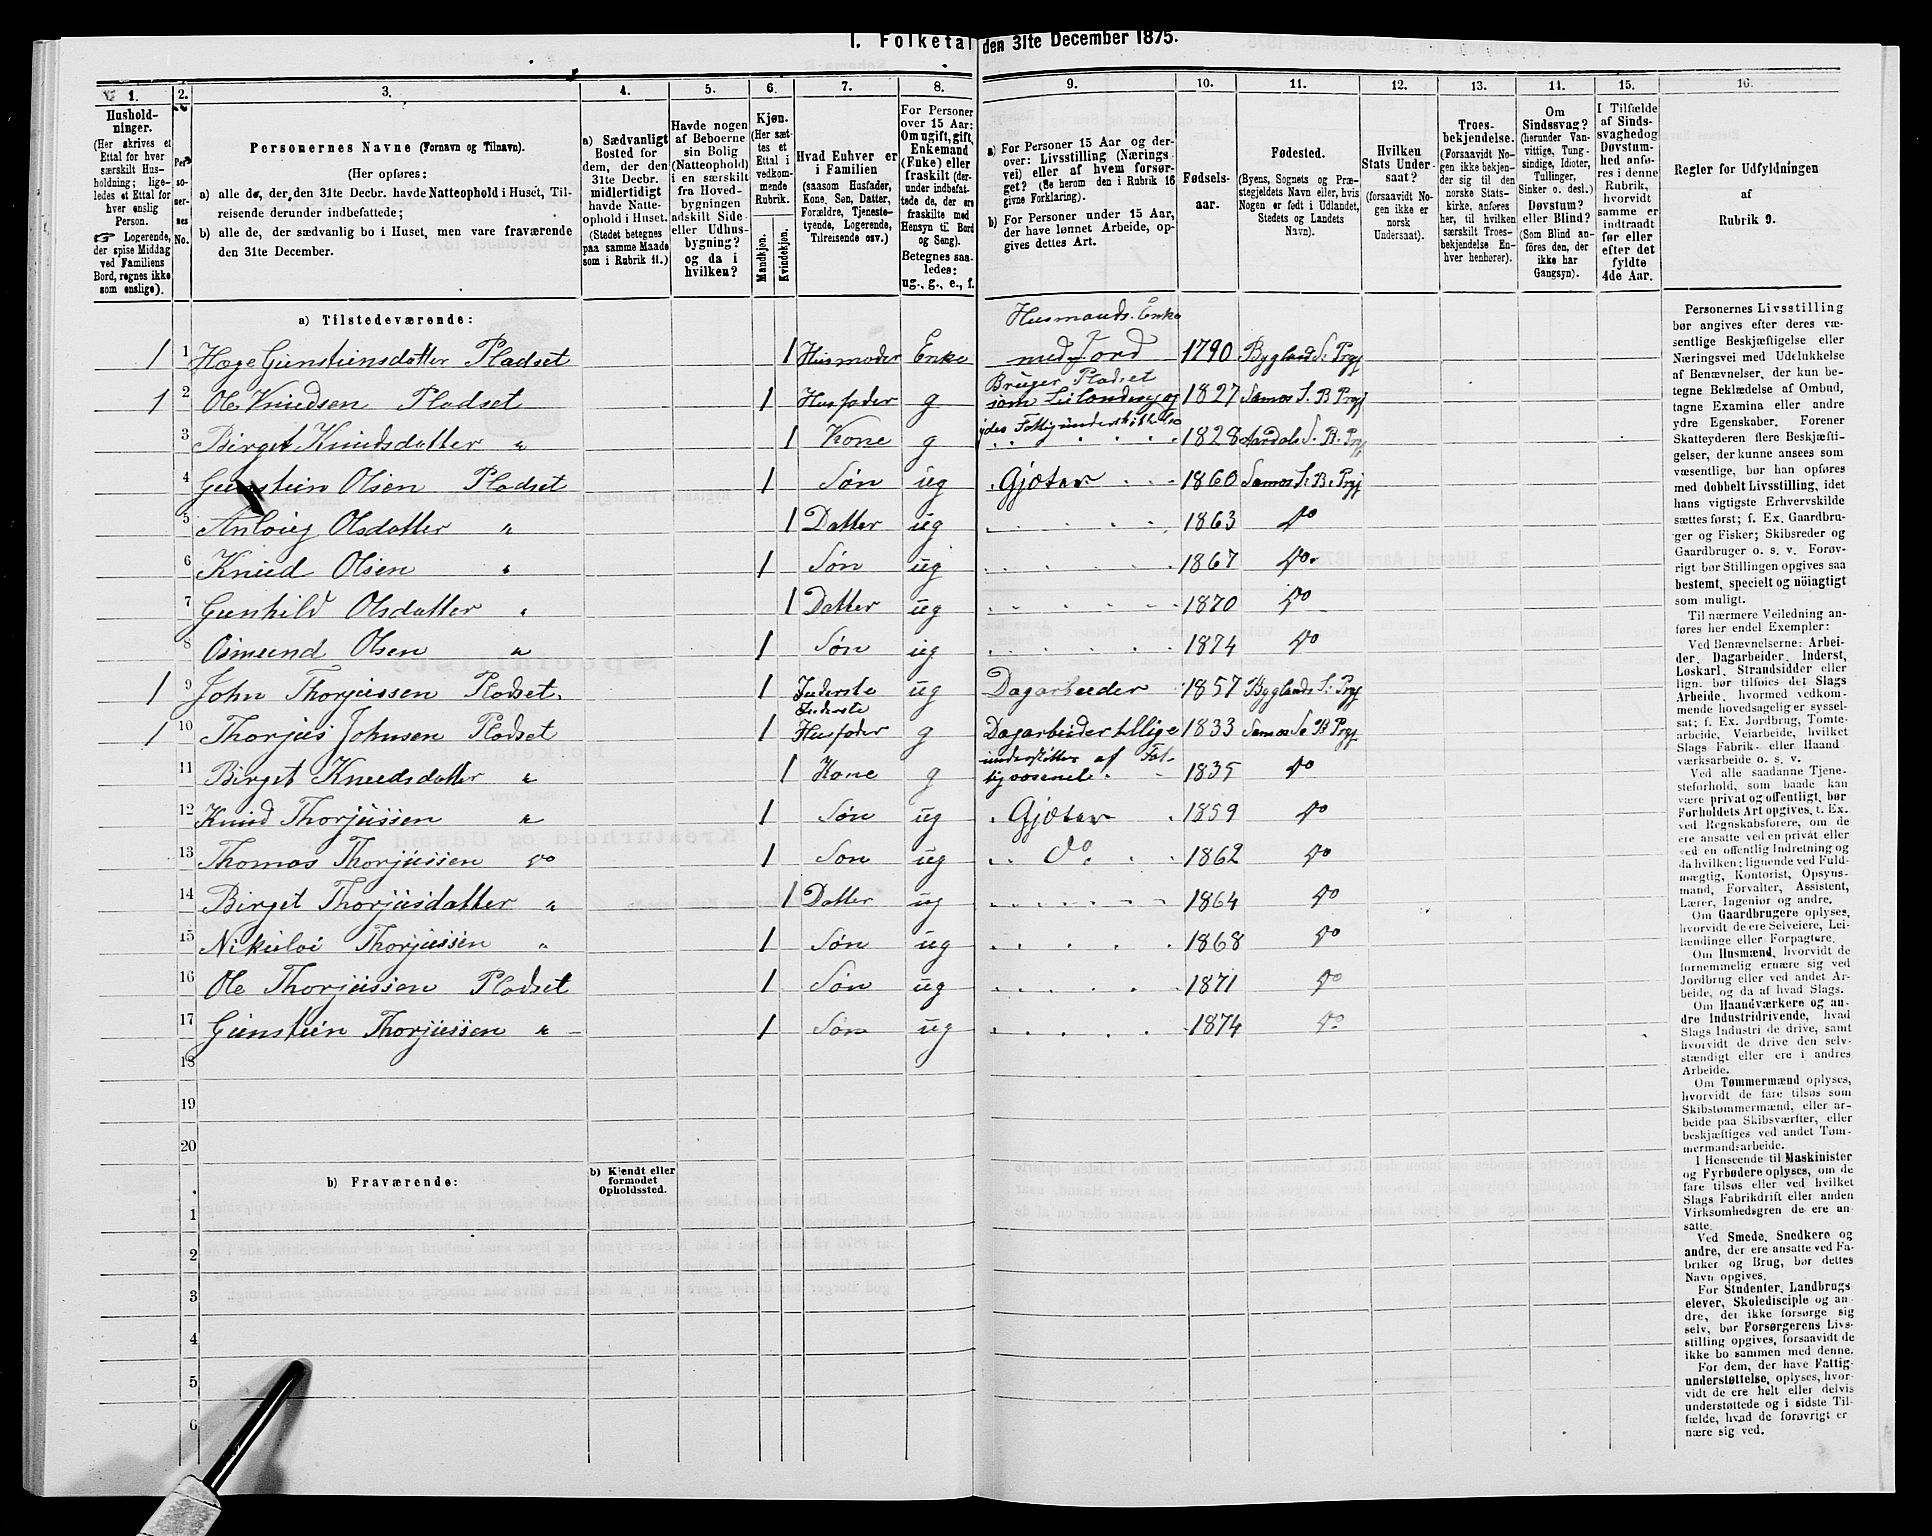 I. Folketal den 31te December 1875.
1. 2. 3. 4. 5. 6. 7. 8. 9. 10. 11. 12. 13. 14. 15. 16.
Hushold-
ninger.
(Her skrives et
Ettal for hver
særskilt Hus-
holdning; lige-
ledes et Ettal for
hver enslig
Person.
Logerende,
der spise Middag
ved Familiens
Bord, regnes ikke
som enslige).
Per-
so-
ner-
nes
No.
Personernes Navne (Fornavn og Tilnavn).
(Her opføres:
a) alle de, der den 31te Decbr. havde Natteophold i Huset, Til-
reisende derunder indbefattede;
b) alle de, der sædvanlig bo i Huset, men vare fraværende
den 31te December.
a) Sædvanligt
Bosted for
dem, der den
31te Decbr.
midlertidigt
havde Natte-
ophold i Huset.
(Stedet betegnes
paa samme Maade
som i Rubrik 11.)
Havde nogen
af Beboerne
sin Bolig
(Natteophold)
i en særskilt
fra Hoved-
bygningen
adskilt Side-
eller Udhus-
bygning?
og da i
hvilken?
Kjøn.
(Her sæt-
tes et
Ettal i
vedkom-
mende
Rubrik.
Mandkjøn.
Kvindekjøn.
Hvad Enhver er
i Familien
(saasom Husfader,
Kone, Søn, Datter,
Forældre, Tjeneste-
tyende, Logerende,
Tilreisende osv.)
For Personer
over 15 Aar:
Om ugift, gift,
Enkemand
(Enke) eller
fraskilt (der-
under indbefat-
tede de, der ere
fraskilte med
Hensyn til Bord
og Seng).
Betegnes saa-
ledes:
ug., g., e., f.
a) For Personer 15 Aar og der-
over: Livsstilling (Nærings-
vei) eller af hvem forsør-
get? (Se herom den i Rubrik 16
givne Forklaring).
b) For Personer under 15 Aar,
der have lønnet Arbeide, op-
gives dettes Art.
Fødsels-
aar.
Fødested.
(Byens, Sognets og Præ-
stegjeldets Navn eller, hvis
Nogen er født i Udlandet,
Stedets og Landets
Navn).
Hvilken
Stats Under-
saat?
(forsaavidt No-
gen ikke er
norsk
Undersaat).
Troes-
bekjendelse.
(Forsaavidt No-
gen ikke bekjen-
der sig til den
norske Stats-
kirke, anføres
her, til hvilken
særskilt Troes-
bekjendelse En-
hver henhører).
Om
Sindssvag?
(herunder Van-
vittige, Tung-
sindige, Idioter,
Tullinger,
Sinker o. desl.)
Døvstum?
eller Blind?
(Som Blind an-
føres den, der
ikke har
Gangsyn).
I Tilfælde
af Sinds-
svaghed og
Døvstum-
hed anfø-
res i denne
Rubrik,
hvorvidt
samme er
indtraadt
før eller
efter det
fyldte
4de Aar.
Regler for Udfyldningen
af
Rubrik 9.
a) Tilstedeværende:
Husmands Enke
1 1 Hæge Gunsteinsdatter Pladset 1 Husmoder Enke med Jord 1790 Bygland S. Prgj
Bruger Pladset
1 2 Ole Knudsen Pladset 1 Husfader g som Leilænding og 1827 Samos S. B Prgj
3 Birget Knudsdatter " 1 Kone g 1828 Aardals S. B. Prgj
4 Gunstein Olsen Pladset 1 Søn ug Gjæter 1860 Samos S. B. Prgj
5 Anlaug Olsdatter " 1 Datter ug 1863 Do
6 Knud Olsen " 1 Søn ug 1867 Do
7 Gunhild Olsdatter " 1 Datter ug 1870 Do
8 Osmund Olsen " 1 Søn ug 1874 Do
1 9 John Thorjussen Pladset 1 Inderste ug Dagarbeider 1857 Byglands S. Prgj
Inderste
1 10 Thorjus Johnsen Pladset 1 Husfader g Dagarbeider tillige 1833 Samos S. B Prgj
understøttes af Fat-
11 Birget Knudsdatter " 1 Kone g tigvæsenet 1835 Do
12 Knud Thorjussen " 1 Søn ug Gjæter 1859 Do
13 Thomas Thorjussen Do 1 Søn ug Do 1862 Do
14 Birget Thorjusdatter " 1 Datter ug 1864 Do
15 Nikulai Thorjussen " 1 Søn ug 1868 Do
16 Ole Thorjussen Pladset 1 Søn ug 1871 Do
17 Gunstein Thorjussen " 1 Søn ug 1874 Do
18
19
20
b) Fraværende:
b) Kjendt eller
formodet
Opholdssted.
1
2
3
4
5
6
Personernes Livsstilling
bør angives efter deres væ-
sentlige Beskjæftigelse eller
Næringsvei med Udelukkelse
af Benævnelser, der kun be-
tegne Beklædelse af Ombud,
tagne Examina eller andre
ydre Egenskaber. Forener
Skatteyderen flere Beskjæfti-
gelser, der kunne ansees som
væsentlige, bør han opføres
med dobbelt Livsstilling, idet
hans vigtigste Erhvervskilde
sættes først; f. Ex. Gaardbru-
ger og Fisker; Skibsreder og
Gaardbruger o. s. v. Forøv-
rigt bør Stillingen opgives saa
bestemt, specielt og nöiagtigt
som muligt.
Til nærmere Veiledning an-
føres her endel Exempler:
Ved Benævnelserne: Arbei-
der, Dagarbeider, Inderst,
Løskarl, Strandsidder eller
lign. bør tilføies det Slags
Arbeide, hvormed vedkom-
mende hovedsagelig er syssel-
sat; f. Ex. Jordbrug, Tomte-
arbeide, Veiarbeide, hvilket
Slags Fabrik- eller Haand-
værksarbeide o. s. v.
Ved alle saadanne Tjene-
steforhold, som baade kan
være privat og offentligt, bør
Forholdets Art opgives, t. Ex.
ved Regnskabsførere, om de
ere ansatte ved en privat eller
ved en offentlig Indretning og
da hvilken; lignende ved Fuld-
mægtig, Kontorist, Opsyns-
mand, Forvalter, Assistent,
Lærer, Ingeniør og andre.
Om Gaardbrugere oplyses,
hvorvidt de ere Selveiere, Lei-
lændinge eller Forpagtere.
Om Husmænd, hvorvidt de
fornemmelig ernære sig ved
Jordbrug eller ved andet Ar-
beide, og da af hvad Slags.
Om Haandværkere og an-
dre Industridrivende, hvad
Slags Industri de drive, samt
hvorvidt de drive den selv-
stændigt eller ere i andres
Arbeide.
Om Tømmermænd oplyses,
hvorvidt de fare tilsøs som
Skibstømmermænd, eller ar-
beide paa Skibsværfter, eller
beskjæftiges ved andet Tøm-
mermandsarbeide.
I Henseende til Maskinister
og Fyrbødere oplyses, om de
fare tilsøs eller ved hvilket
Slags Fabrikdrift eller anden
Virksomhedsgren de ere an-
satte.
Ved Smede, Snedkere og
andre, der ere ansatte ved Fa-
briker og Brug, bør dettes
Navn opgives.
For Studenter, Landbrugs-
elever, Skoledisciple og an-
dre, der ikke forsørge sig
selv, bør Forsørgerens Livs-
stilling opgives, forsaavidt de
ikke bo sammen med denne.
For dem, der have Fattig-
understøttelse, oplyses, hvor-
vidt de ere helt eller delvis
understøttede og i sidste Til-
fælde, hvad de forøvrigt er-
nære sig ved.